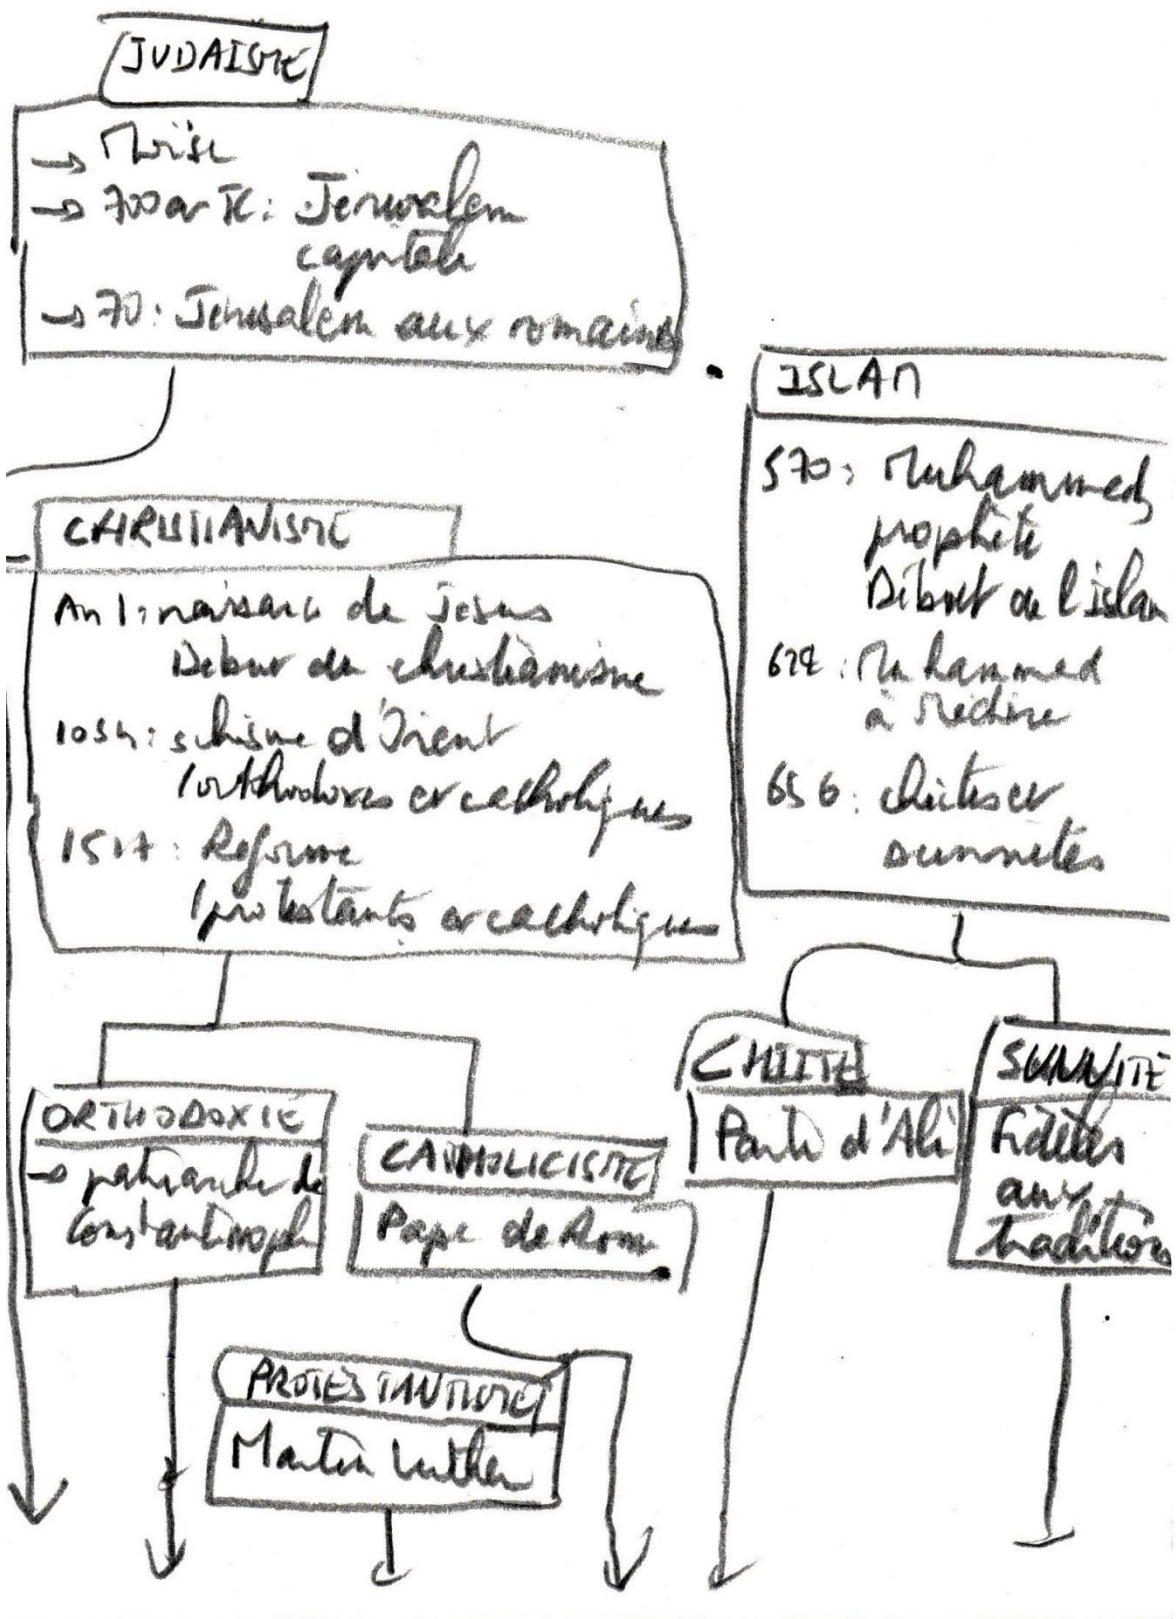 JUDAISME
→ Moïse
→ 700 av JC : Jerusalem
capitale
→ 70 : Jerusalem aux romains
ISLAM
570 : Muhammed,
prophète
Début de l'islam
622 : Muhammed
à Médine
656 : chiites et
sunnites
CHRISTIANISME
An 1 : naissance de Jesus
Début du christianisme
1054 : schisme d'Orient
/orthodoxes et catholiques
1517 : Reforme
/protestants et catholiques
ORTHODOXIE
→ patriarche de
Constantinople
CATHOLICISME
Pape de Rome
CHIITE
Parti d'Ali
SUNNITE
Fidèles
aux
traditions
PROTESTANTISME
Martin Luther